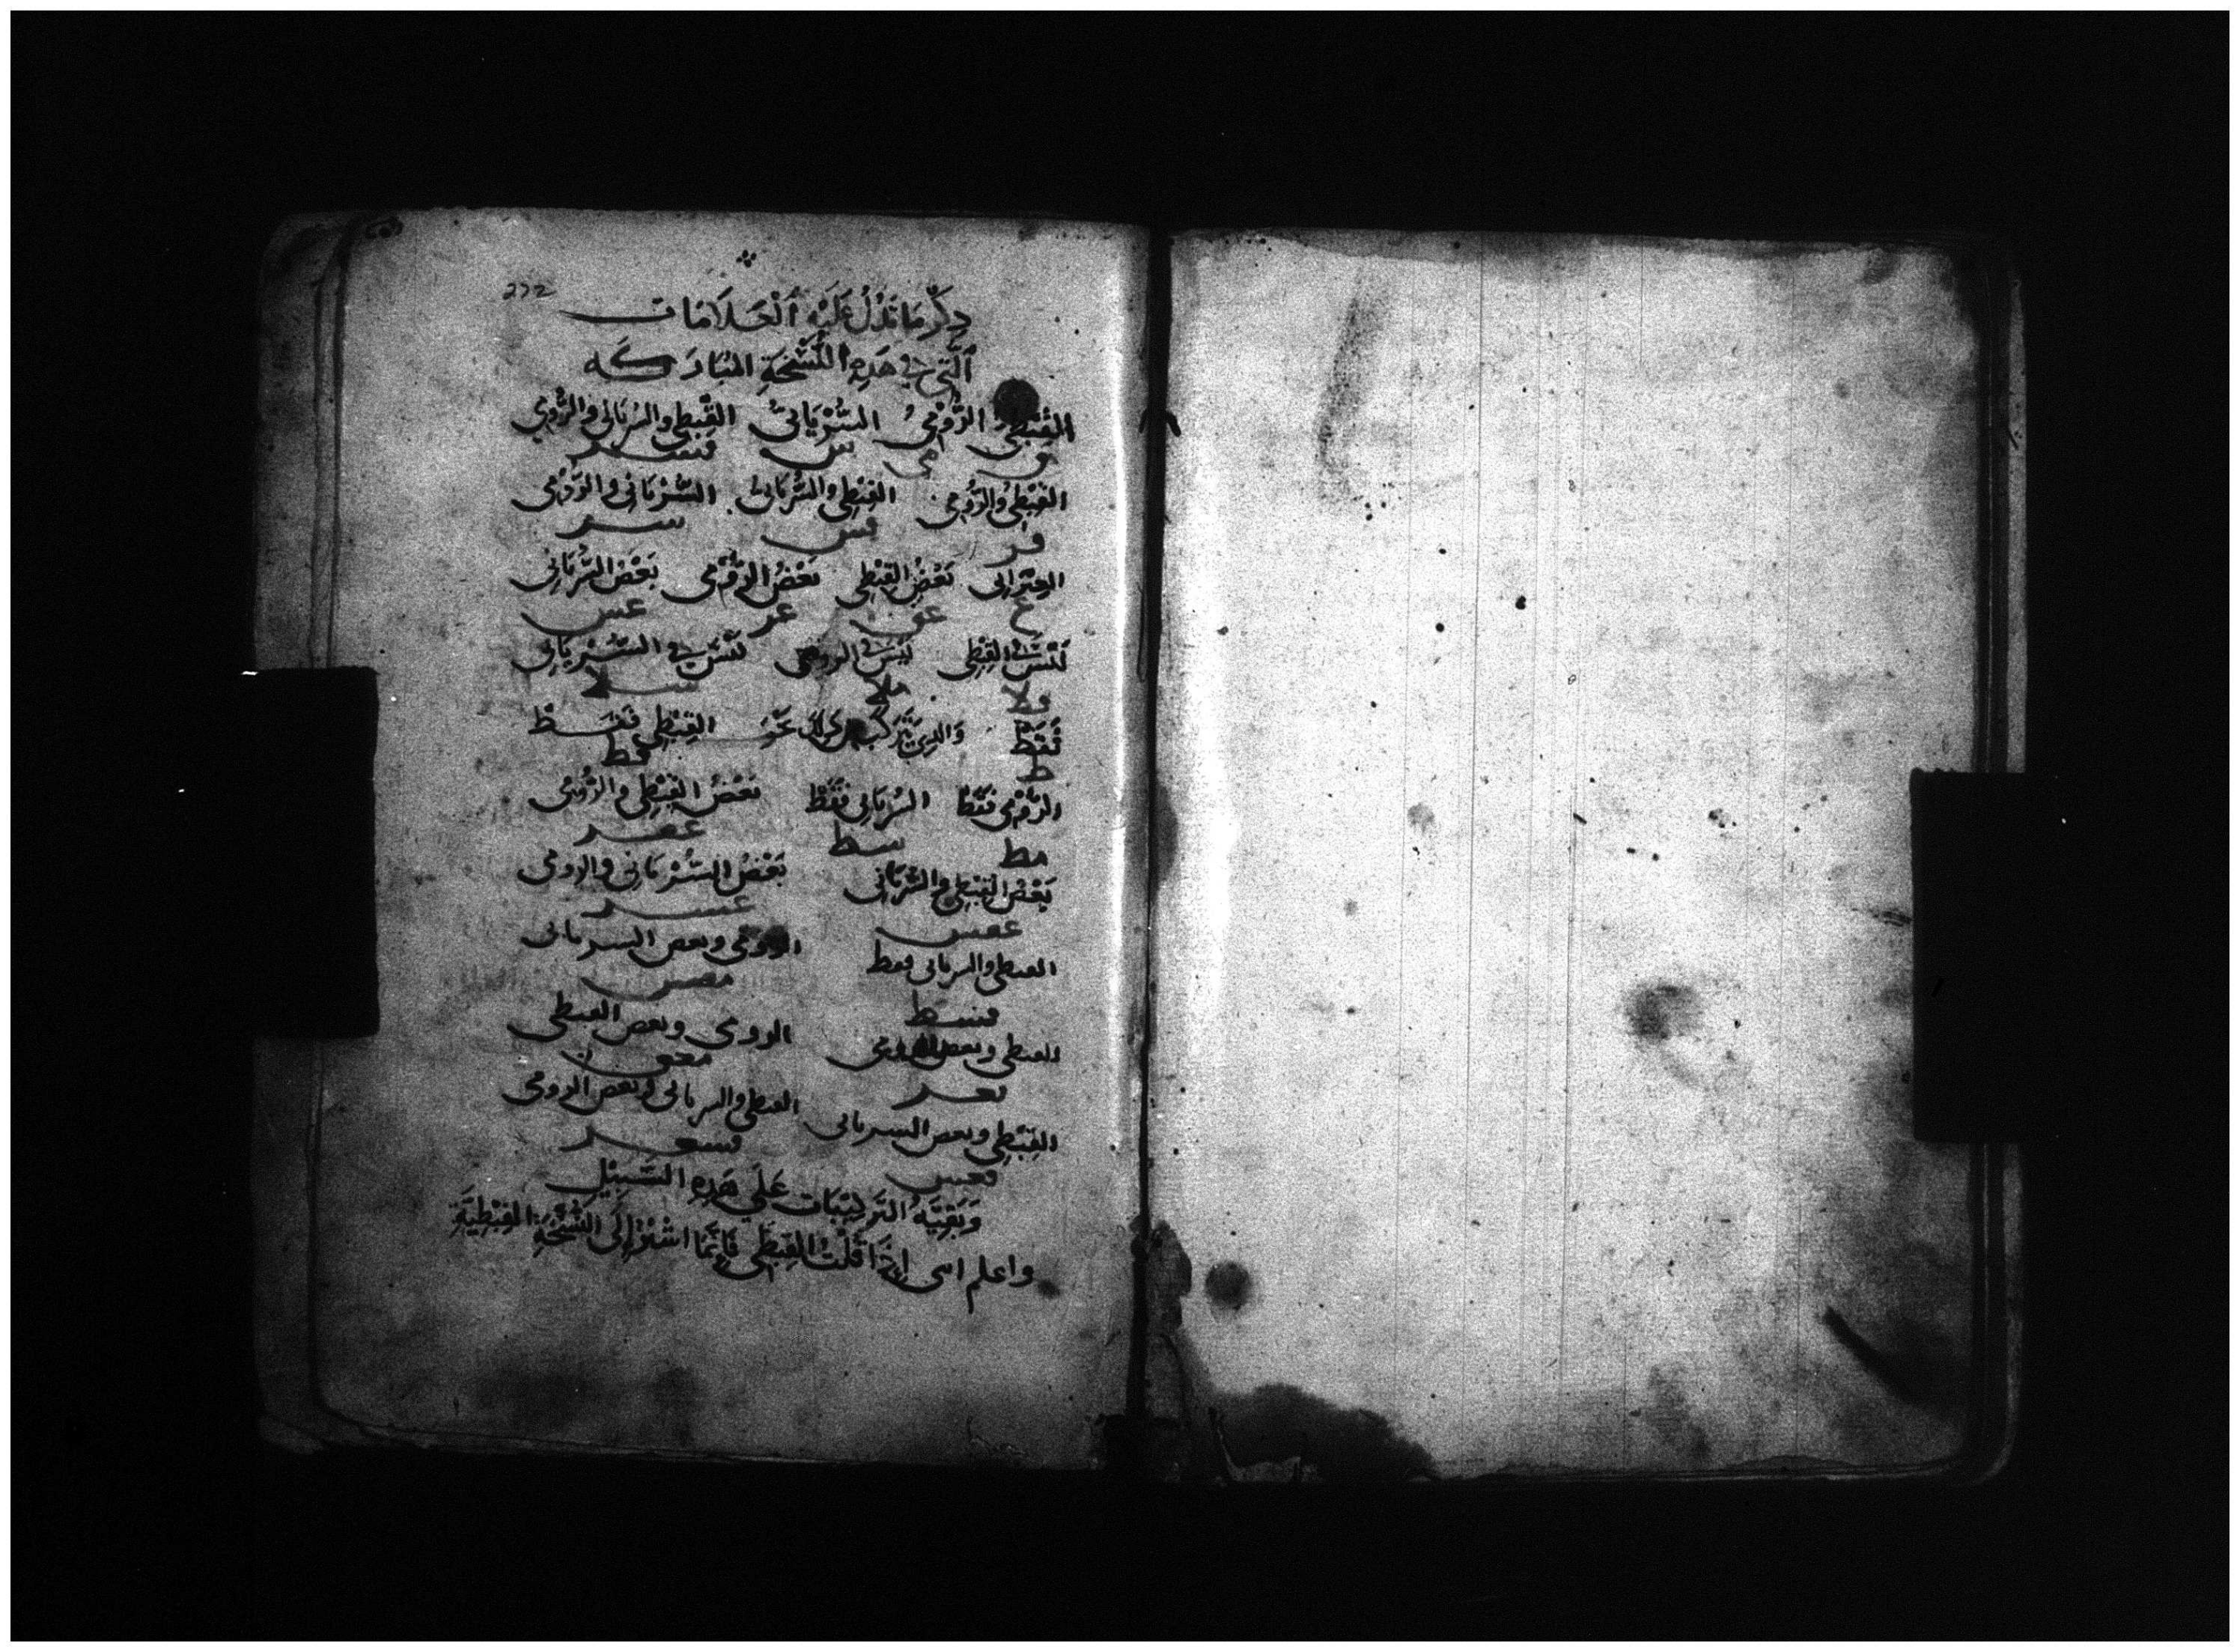 232
ذكر ما تدل عليه العلامات
التي في هذه النسخة المباركه
القبطي الرومي السرياني القبطي والسرياني والرومي
ق م س
القبطي والرومي القبطي والسرياني السرياني والرومي
قر قس سر
العبراني بعض القبطي بعض الرومي بعض السرياني
ع عق عر عس
ليس في القبطي ليس في الرومي ليس في السرياني
ولا ملا سلا
فقط والذي يتركب القبطي فقط
ط قط
الرومي فقط السرياني فقط بعض القبطي والرومي
مط سط عقر
بعض القبطي والسرياني بعض السرياني والرومي
عقس عسر
القبطي والسرياني فقط الرومي وبعض السرياني
قسط
القبطي وبعض الرومي الرومي وبعض القبطي
قعر معق
القبطي وبعض السرياني القبطي والسرياني وبعض الرومي
قعس قسعر
وبقيه التركيبات على هذه السبيل
واعلم انى اذا قلت القبطي فانما اشير الى النسخة القبطية